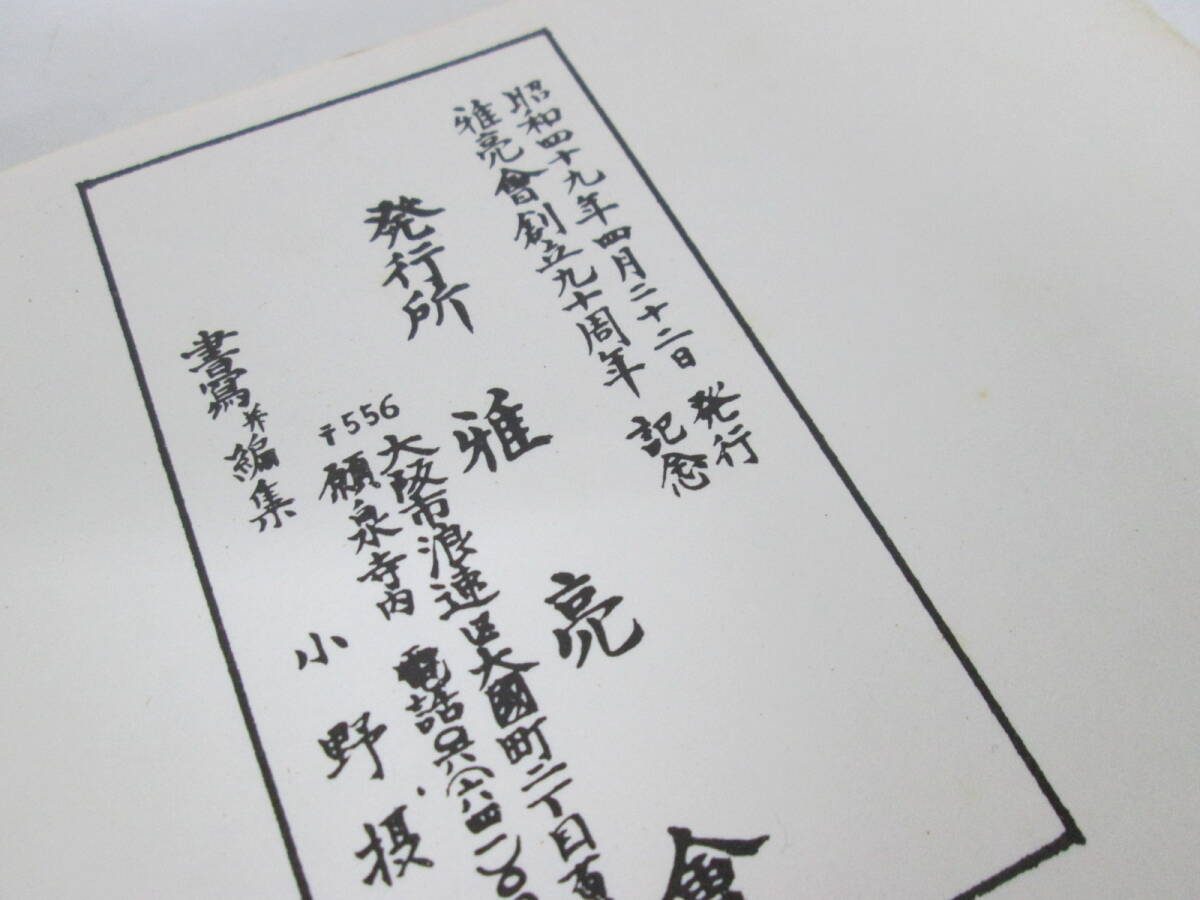 昭和四十九年四月二十二日 発行
雅亮會創立九十周年 記念
発行所 雅亮會
〒556 大阪市浪速区大國町二丁目
願泉寺内 電話 (六四一)〇
書寫并編集 小野摂